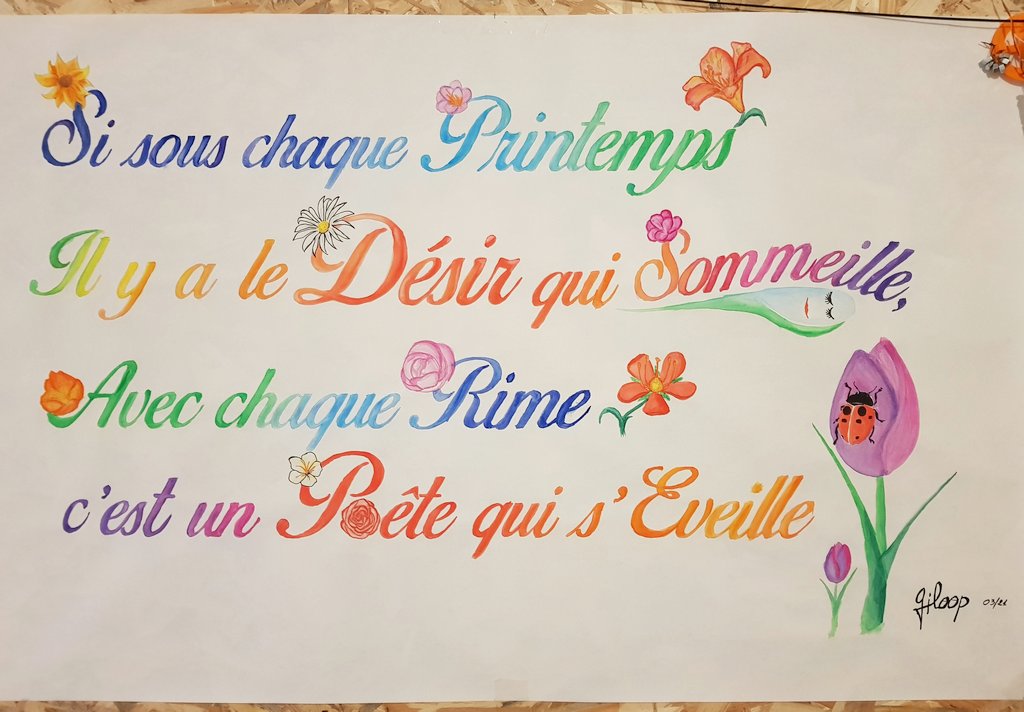 Si sous chaque Printemps
Il y a le Désir qui Sommeille,
Avec chaque Rime
c'est un Poête qui s'Eveille
giloop 03/21